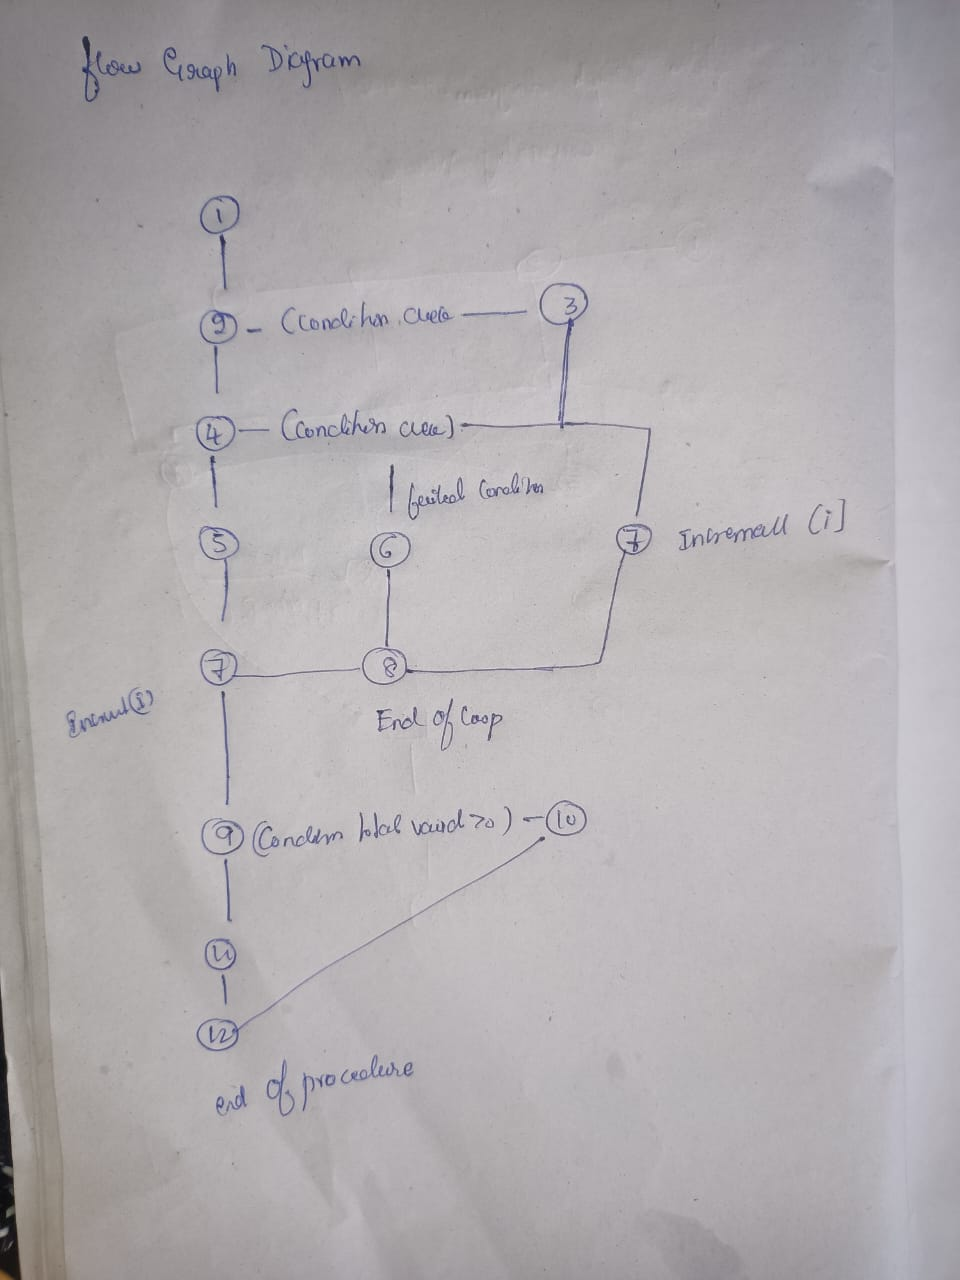 flow Graph Diagram
1
2 - (Condition area - 3
4 - (Condition area) -
Condition
5
6
7 Increment (i]
7
8
End of Loop
9 (Condition total valid >0) - 10
11
12
end of procedure